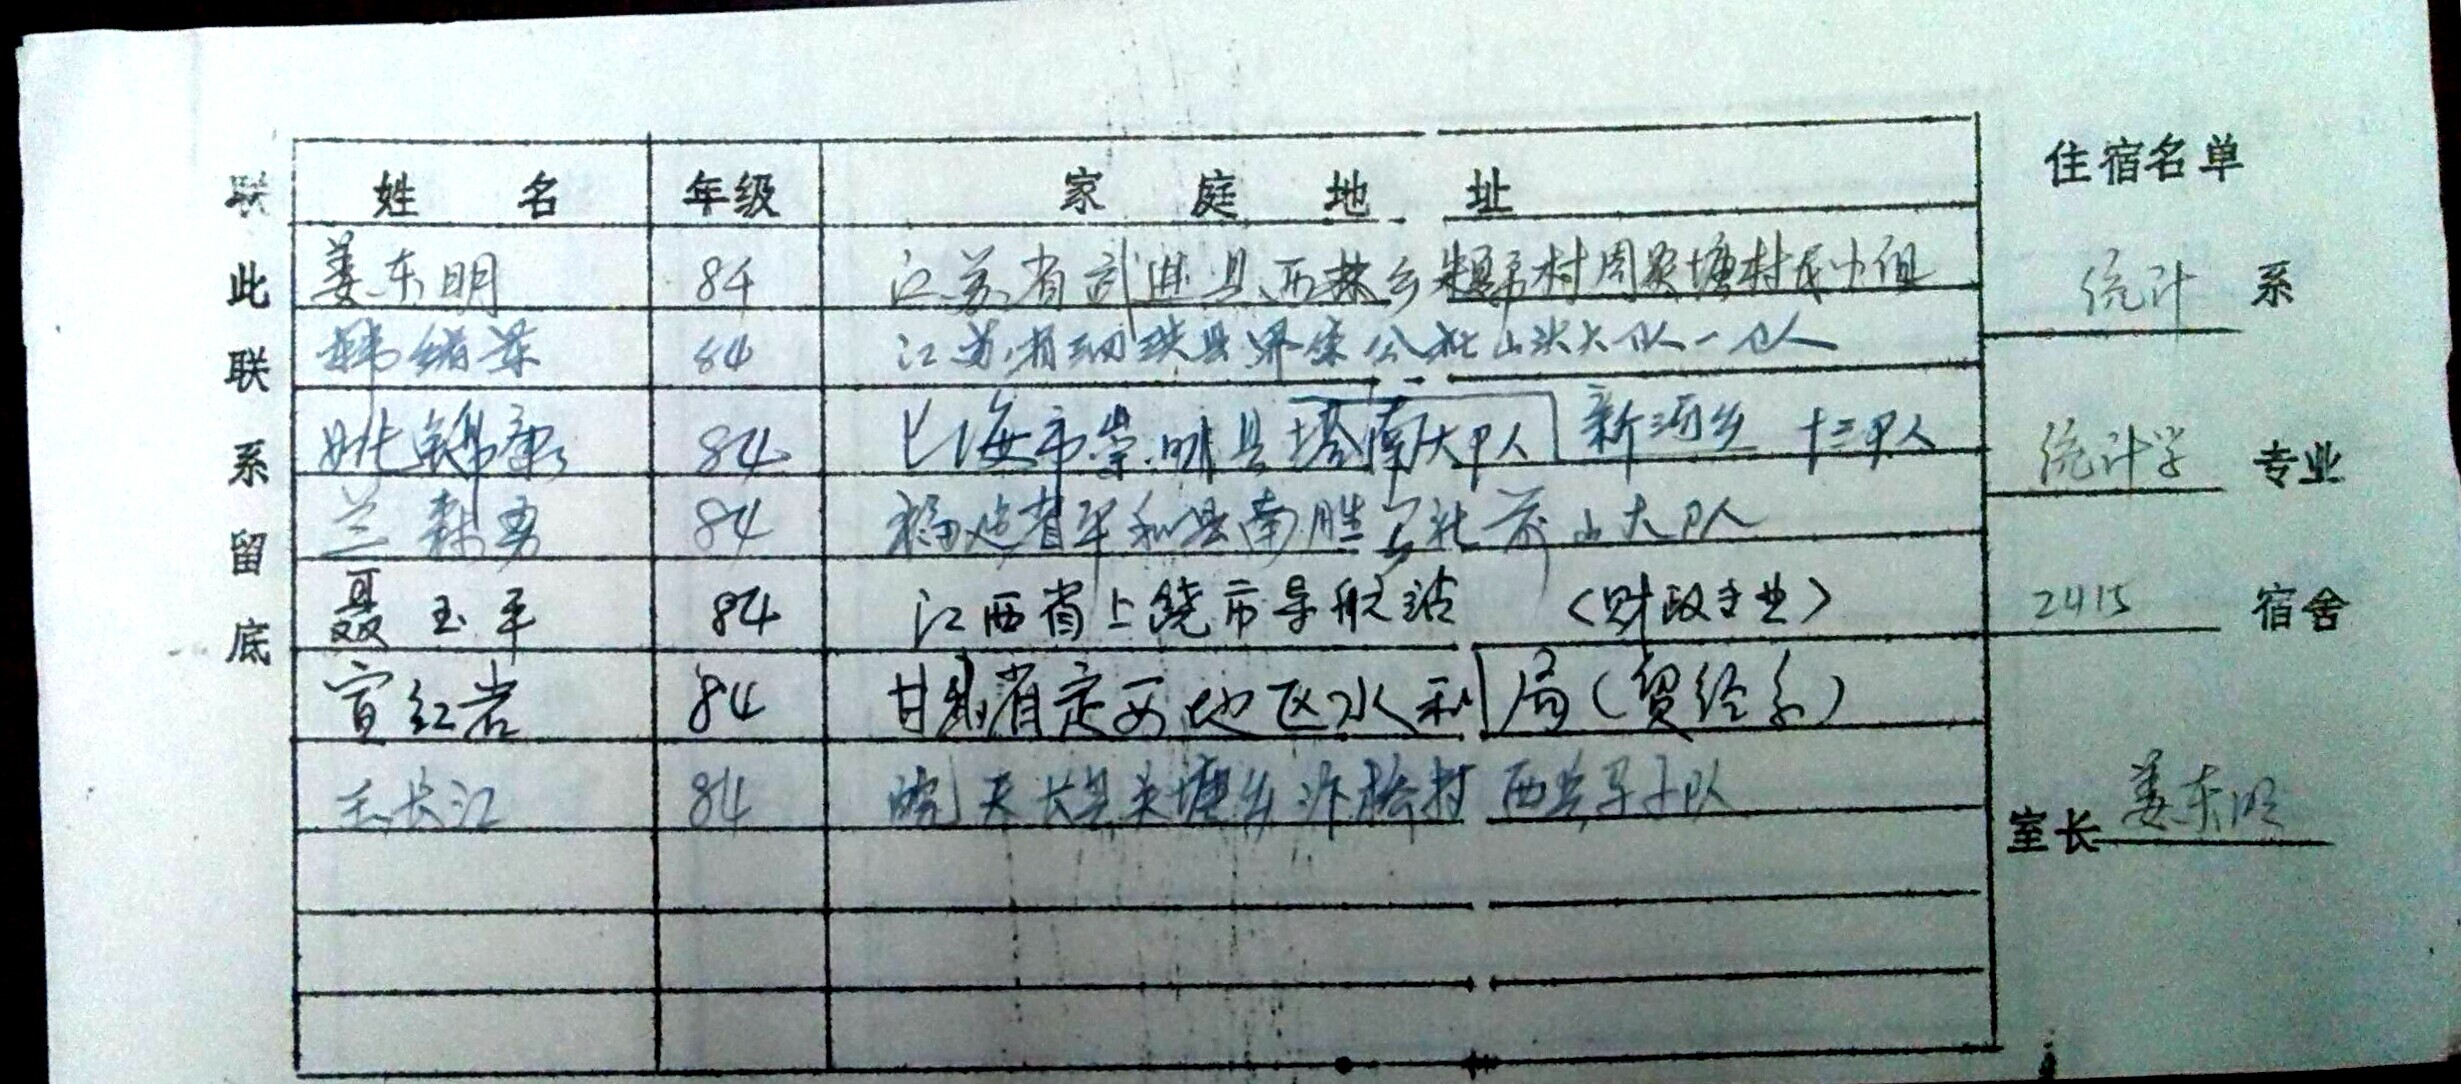 住宿名单
联此联系留底
姓 名 年级 家庭地址
姜东明 84 江苏省武进县西林乡村周家塘村民小组
韩绪荣 84 江苏省县公社山头大队一队
姚锦康 84 上海市崇明县塔南大队 新河乡 十三队
兰森勇 84 福建省平和县南胜公社前山大队
聂玉平 84 江西省上饶市导航站 (财政专业)
宣红岩 84 甘肃省定西地区水利局(贸经系)
王长江 84 皖天长县关塘乡汴桥村西庄子队
统计 系
统计学 专业
2415 宿舍
室长 姜东明